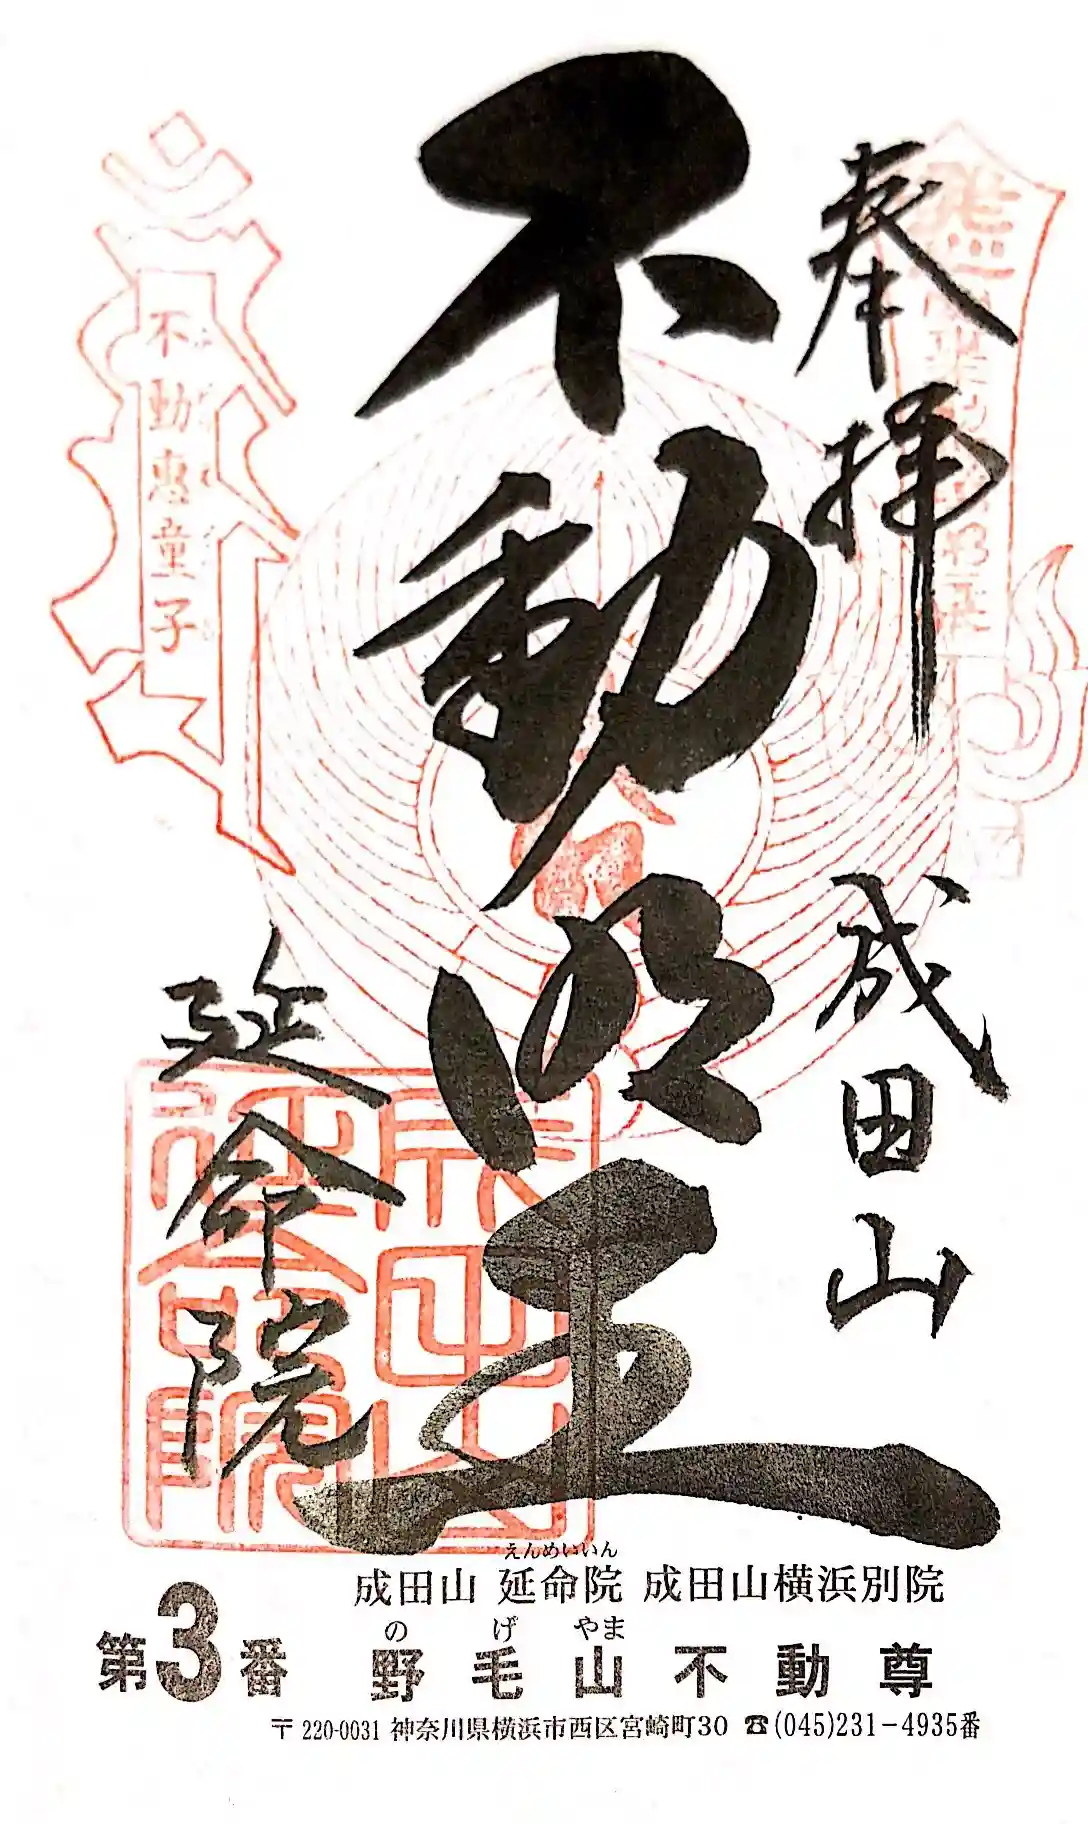 奉拝
成田山
不動明王
延命院
不動恵童子
成田山延命院
えんめいいん
成田山 延命院 成田山横浜別院
の げ やま
第3番 野毛山不動尊
〒220-0031 神奈川県横浜市西区宮崎町30 ☎(045)231-4935番